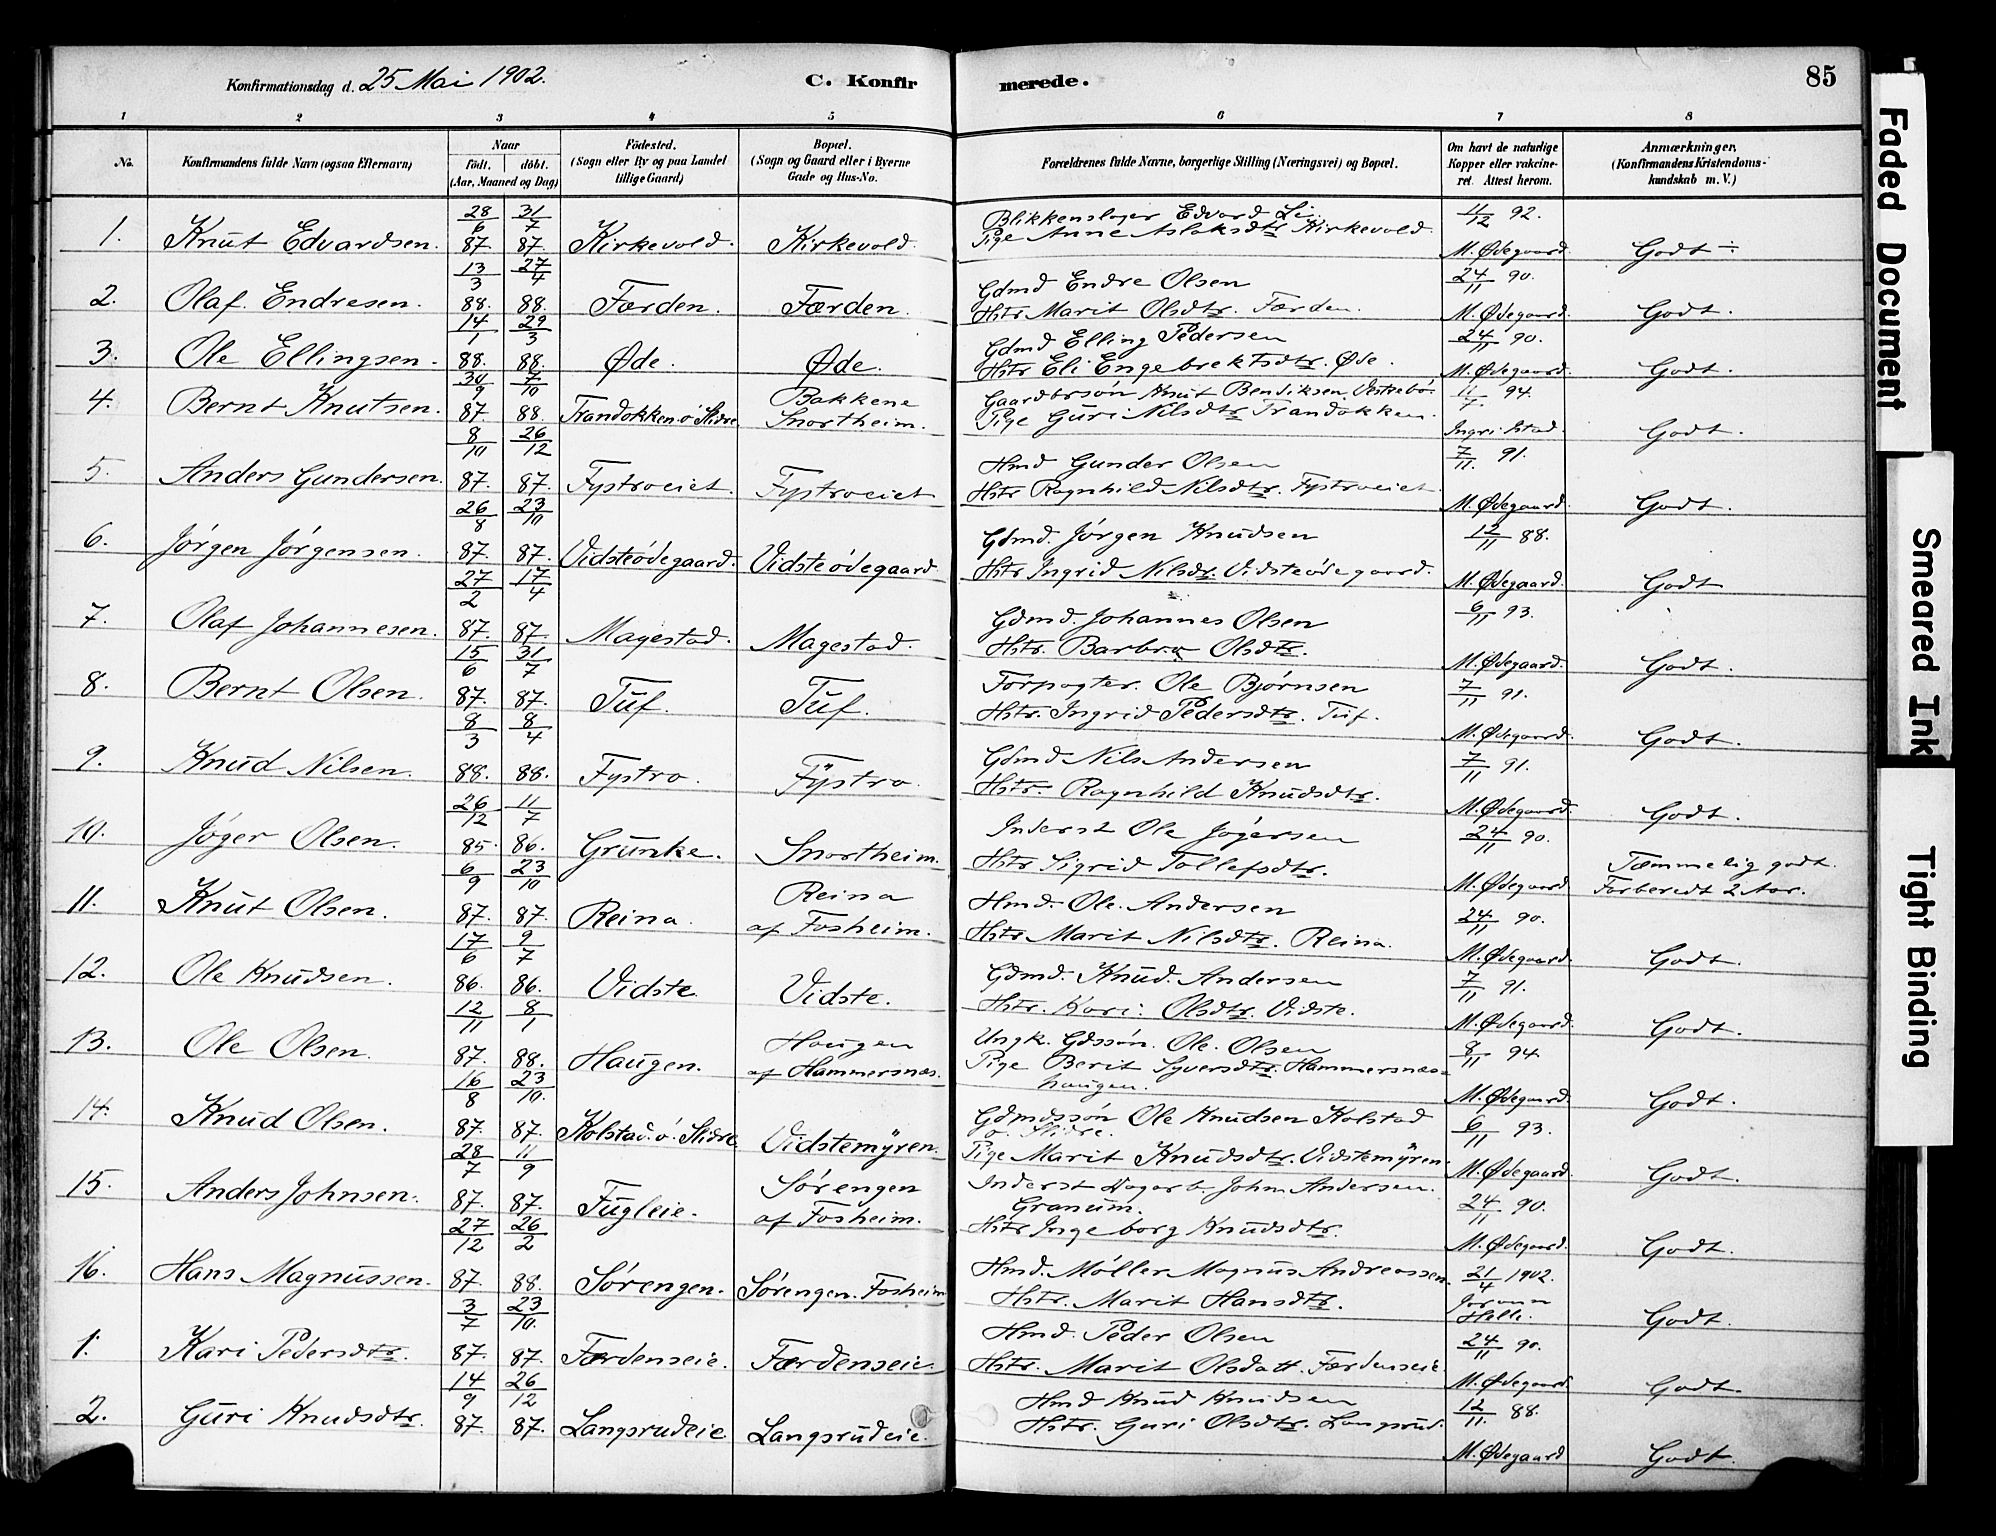 Konfirmationsdag d. 25 Mai 1902.
C. Konfirmerede.
85
1 2 3 4 5 6 7 8
No.
Konfirmandens fulde Navn (ogsaa Efternavn)
Naar
födt. döbt.
(Aar, Maaned og Dag)
Födested.
(Sogn eller By og paa Landet
tillige Gaard)
Bopæl.
(Sogn og Gaard eller i Byerne
Gade og Hus-No.
Forældrenes fulde Navne, borgerlige Stilling (Næringsvei) og Bopæl.
Om havt de naturlige
Kopper eller vakcine-
ret. Attest herom.
Anmærkninger.
(Konfirmandens Kristendoms-
kundskab m. V.)
1. Knut Edvardsen. 28/6 87. 31/7 87. Kirkevold. Kirkevold.
Blikkenslager Edvard Li
Pige Anne Aslaksdtr Kirkevold.
11/12 92. M. Ødegaard. Godt ÷
2. Olaf Endresen. 13/3 88. 27/4 88. Færden. Færden.
Gdmd Endre Olsen
Hstr Marit Olsdtr. Færden.
24/11 90. M. Ødegaard. Godt.
3. Ole Ellingsen. 14/1 88. 29/3 88. Øde. Øde.
Gdmd Elling Pedersen
Hstr Eli Engebrektsdtr. Øde.
24/11 90. M. Ødegaard. Godt.
4. Bernt Knutsen. 30/9 87. 7/10 88. Trandokken ö Slidre Bakkene
Snortheim.
Gaardbrsön Knut Bendiksen Vestrebö.
Pige Guri Nilsdtr Trandokken.
11/7 94. Ingri Istad. Godt.
5. Anders Gundersen. 8/10 87. 26/12 87. Fystroeiet. Fystroeiet
Hmd Gunder Olsen
Hstr Ragnhild Nilsdtr. Fystroeiet.
7/11. 91. M. Ødegaard. Godt.
6. Jörgen Jörgensen. 26/8 87. 23/10 87. Vidsteödegaard. Vidsteödegaard
Gdmd. Jörgen Knudsen
Hstr Ingrid Nilsdr. Vidsteödegaard.
12/11 88. M. Ødegaard. Godt
7. Olaf Johannesen. 27/2 87. 17/4 87. Magestad. Magestad.
Gdmd. Johannes Olsen
Hstr. Barbra Olsdtr.
6/11 93. M. Ødegaard. Godt.
8. Bernt Olsen. 15/6 87. 31/7 87. Tuf. Tuf.
Forpagter. Ole Björnsen
Hstr. Ingrid Pedersdtr. Tuf.
7/11 91. M. Ødegaard. Godt.
9. Knud Nilsen. 8/3 88. 8/4 88. Fystro. Fystro.
Gdmd Nils Andersen
Hstr. Ragnhild Knudsdtr.
7/11 91. M. Ødegaard. Godt.
10. Jöger Olsen. 26/12 85. 11/7 86. Grunke. Snortheim.
Inderst Ole Jögersen
Hstr Sigrid Tollefsdtr.
24/11 90. M. Ødegaard. Tæmmelig godt.
Forberedt 2 Aar.
11. Knut Olsen. 6/9 87. 23/10 87. Reina. Reina
af Fosheim.
Hmd. Ole. Andersen
Hstr Marit Nilsdtr. Reina.
24/11 90. M. Ødegaard. Godt.
12. Ole Knudsen. 17/6 86. 9/7 86. Vidste. Vidste.
Gdmd. Knud. Andersen
Hstr. Kari. Olsdtr. Vidste.
7/11 91. M. Ødegaard. Godt.
13. Ole Olsen. 12/11 87. 8/1 88. Haugen. Haugen
af Hammersnæs.
Ungk. Gdssön. Ole. Olsen
Pige Berit Syversdtr. Hammersnæs-
haugen.
8/11 94. M. Ødegaard. Godt.
14. Knud Olsen. 16/8 87. 23/10. 87. Kolstad. ö. Slidre. Vidstemyren.
Gdmdssön Ole Knudsen Kolstad
ö. Slidre.
Pige Marit Knudsdtr. Vidstemyren.
6/11 93. M. Ødegaard. Godt.
15. Anders Johnsen. 28/7 87. 11/9 87. Fugleie. Sörengen
af Fosheim.
Inderst John Andersen.
Granum.
Hstr Ingeborg Knudsdtr.
24/11 90. M. Ødegaard. Godt.
16. Hans Magnussen. 27/12 87. 26/2 88. Sörengen. Sörengen. Fosheim
Hmd. Möller Magnus Andreassen.
Hstr. Marit Hansdtr.
21/4 1902. Jorann
Helle. Godt.
1. Kari Pedersdtr. 3/7 87. 23/10. 87. Færdenseie. Færdenseie.
Hmd. Peder Olsen
Hstr. Marit Olsdatt. Færdenseie
24/11 90. M. Ødegaard. Godt.
2. Guri Knudsdtr. 14/9 87. 26/12 87. Langsrudeie Langsrudeie.
Hmd Knud Knudsen
Hstr. Guri Olsdtr. Langsrud.
12/11. 88. M. Ødegaard Godt
Faded Document
Smeared Ink
Tight Binding